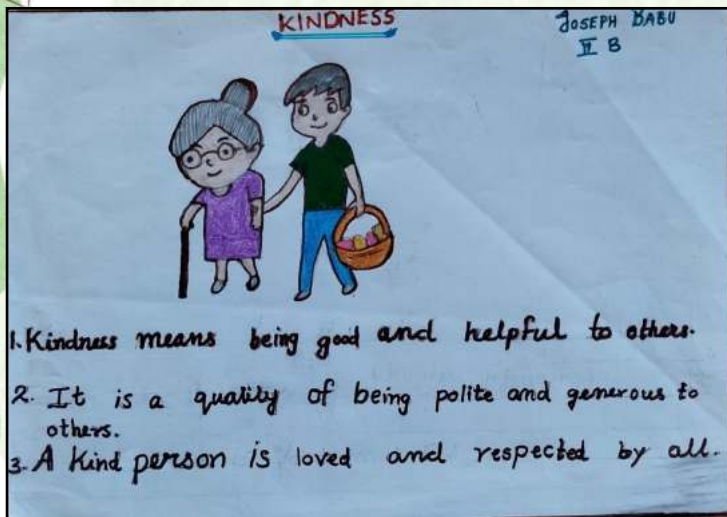 KINDNESS
JOSEPH BABU
II B
1. Kindness means being good and helpful to others.
2. It is a quality of being polite and generous to
others.
3. A Kind person is loved and respected by all.